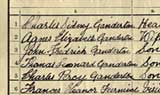 Charles Sidney Ganderton Hea
Agnes Elizabeth Ganderton Wife
John Fredrick Ganderton Son
Thomas Leonard Ganderton Son
Charles Percy Ganderton Son
Frances Eleanor